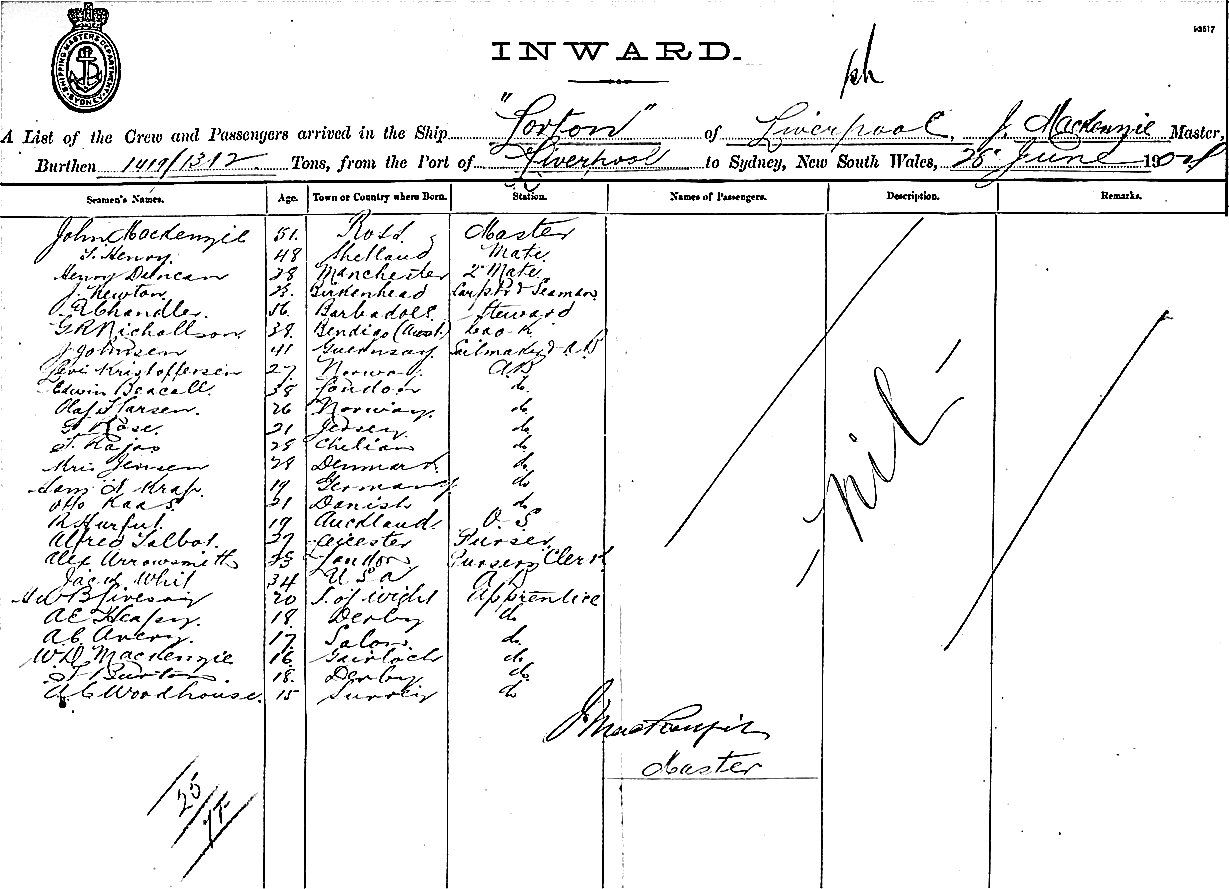 SHIPPING MASTERS DEPARTMENT SYDNEY
INWARD.
A List of the Crew and Passengers arrived in the Ship "Lorton" of Liverpool, J. Mackenzie Master,
Burthen 1419/1312 Tons, from the Port of Liverpool to Sydney, New South Wales, 28 June 1904
Seamen's Names. Age. Town or Country where Born. Station. Names of Passengers. Description. Remarks.
John Mackenzie 51. Ross. Master
T. Henry. 48 Shetland Mate
Henry Duncan 38 Manchester 2nd Mate
J. Newton. 23. Birkenhead Carptr & Seaman
Chandler. 56. Barbadoes. Steward
G R Nicholson. 38. Bendigo (Aust.) Cook
J Johnsen 41 Guernsey Sailmaker & A.B
Levi Kristoffersen 27 Norway. A.B
Edwin Beacall. 38 London do
Olaf Larsen. 26 Norway. do
Rose. 21 Jersey do
Rajas 28 Chelian do
Jensen 28 Denmark do
Krap. 19 Germany do
Otto Kaas. 21 Danish do
19 Auckland O.S
Alfred Talbot. 37 Leicester Purser
Alex Arrowsmith 35 London Pursers Clerk
Jack Whit 34 U.S.A A.B
20 I. of Wight Apprentice
A E Heapy. 18 Derby do
A C Avery. 17. do
W.D. Mackenzie 16 Gairloch do
Burton. 18. Derby do
A C Woodhouse. 15 Surrey do
nil
J Mackenzie
Master
25